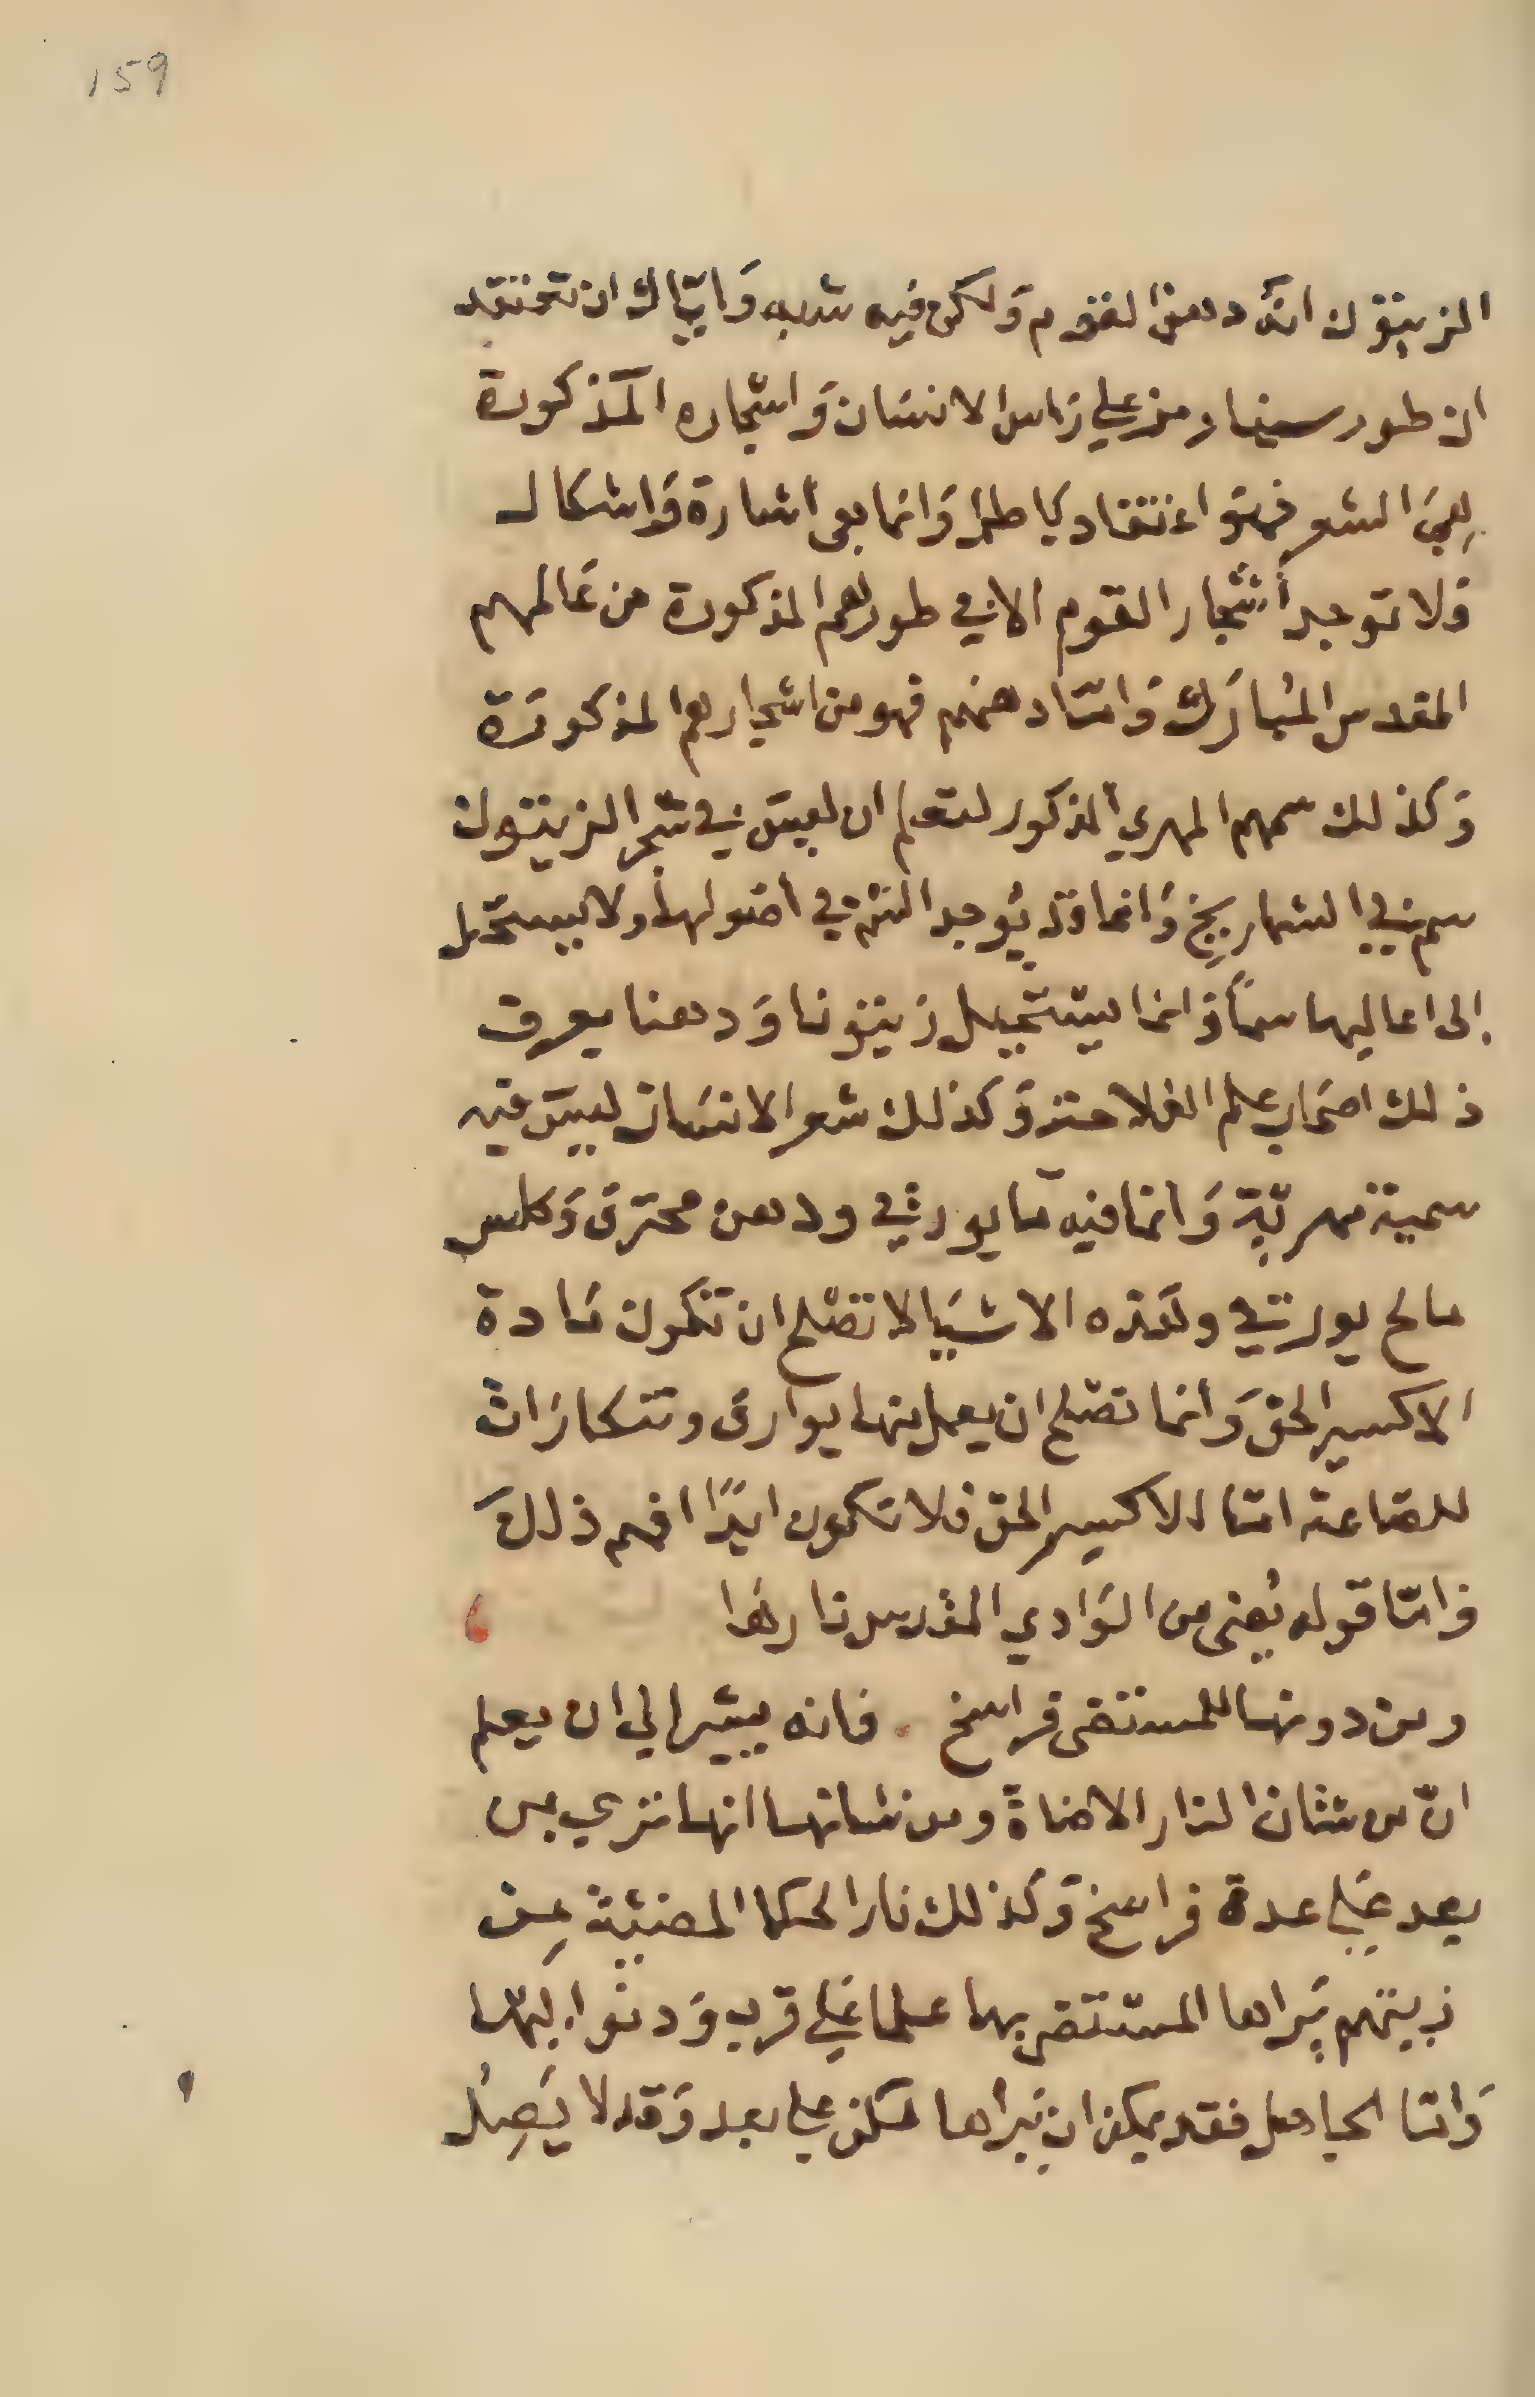 159
الزيتون انه دهن القوم ولكن فيه شبه وَاياك ان تعتقد
ان طور سينا رمز علي رَاس الانسَان وَاشجاره المذكورة
هِيَ الشعر فهوَ اعتقاد باطل وَانما هي اشارة وَاشكال
فلا توجد أشجار القوم الا في طورهم المذكورة من عَالمهم
المقدس المبَارَك وَامّا دهنهم فهو من اشجارهم المذكورَة
وَكذلك سمهم المهري المذكور لتعلم ان ليسَ في شجر الزيتون
سم في الشماريخ وَانما قد يُوجد السم في اصولها ولا يستحيل
إلى اعاليها سماً وَانما يستحيل زيتونا وَدهنا يعرف
ذلك اصحَاب علم الفلاحة وَكذلك شعر الانسَان ليسَ فيه
سمية مهريّة وَانما فيه ما يورقي ودهن محترق وَكلس
مالح بورقي وهَذه الاشيَا لا تصلح ان تكون مَادة
الاكسير الحق وَانما تصلح ان يعمل منها بوارق وتنكارَات
للصناعة امّا الاكسير الحق فلا تكون ابدًا افهم ذلكَ
فامّا قوله يُعنى من الوَادي المقدس نارهَا
ومن دونها للمستضى فراسخ . فانه يشير الي ان يعلم
انّ من شان النار الاضاة ومن شانها انها تري من
بعد عَلي عدة فراسخ وَكذلك نار الحكما المضيئة مِن
زيتهم يَراها المستضي بها علما عَلي قرب وَدنوا اليها
وَامّا الجاهل فقد يمكن ان يَراها لكن علي بعد وَقد لا يَصِلُ